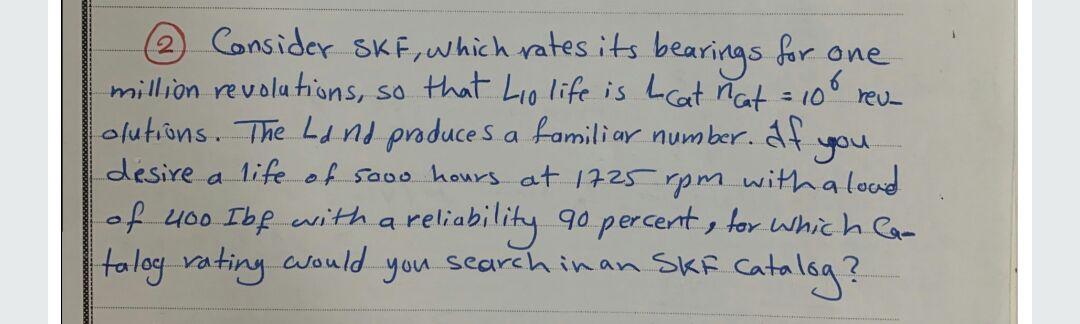 ② Consider SKF, which rates its bearings for one
million revolutions, so that L10 life is Lcat ncat = 10⁶ rev-
olutions. The Ld nd produces a familiar number. If you
desire a life of 5000 hours at 1725 rpm with a load
of 400 Ibf with a reliability 90 percent, for which Ca-
talog rating would you search in an SKF Catalog?